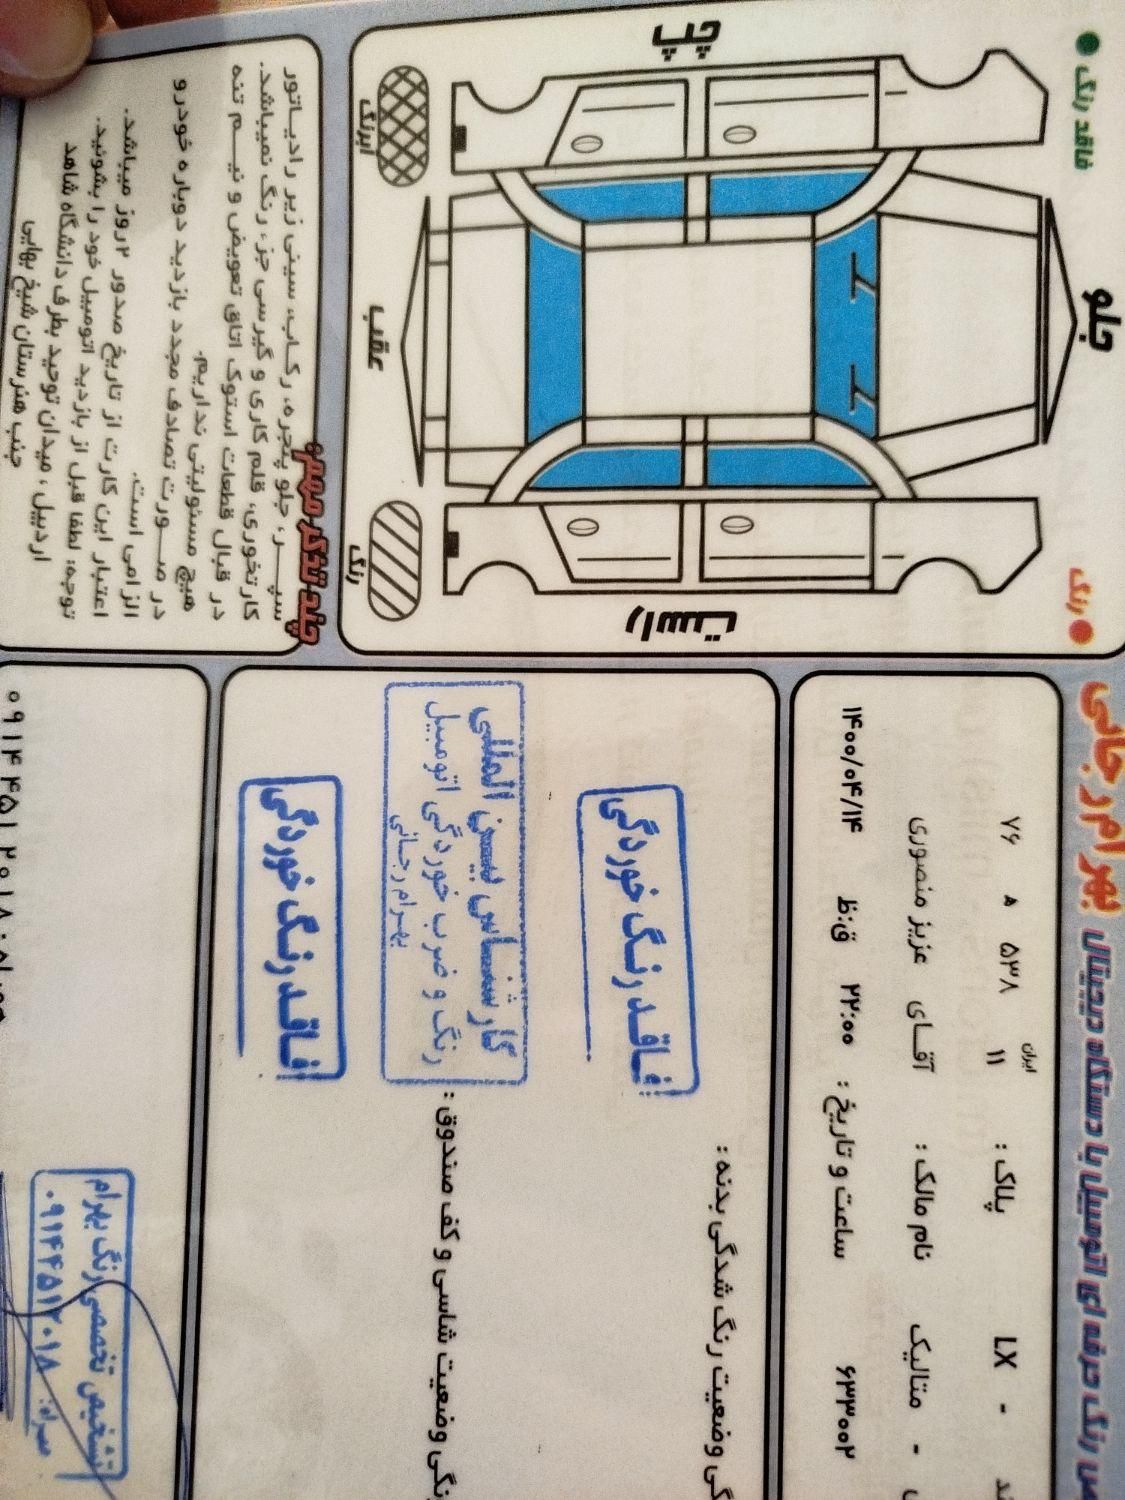 بهرام رجایی
رنگ حرفه ای اتومبیل با دستگاه دیجیتال
LX -
پلاک :
ایران
۱۱ ۵۳۸ ۵ ۷۶
- متالیک
نام مالک : آقای عزیز منصوری
۶۳۳۰۰۲
ساعت و تاریخ : ۲۲:۰۰ ق.ظ ۱۴۰۰/۰۴/۱۴
وضعیت رنگ شدگی بدنه :
فاقد رنگ خوردگی
وضعیت شاسی و کف صندوق :
کارشناس بین المللی
رنگ و ضرب خوردگی اتومبیل
بهرام رجائی
فاقد رنگ خوردگی
تشخیص تخصصی رنگ بهرام
همراه: ۰۹۱۴۴۵۱۲۰۱۸
۰۹۱۴ ۴۵۱ ۲۰۱۸
فاقد رنگ
رنگ
جلو
چپ
راست
عقب
ابرنگ
رنگ
چند تذکر مهم:
سپر، جلو پنجره، رکاب، سینی زیر رادیاتور
کارتخوری، قلم کاری و گیرسی جزء رنگ نمیباشد.
در قبال قطعات استوک اتاق تعویض و نیم تنه
هیچ مسئولیتی نداریم.
در صورت تصادف مجدد بازدید دوباره خودرو
الزامی است.
اعتبار این کارت از تاریخ صدور ۲ روز میباشد.
توجه: لطفا قبل از بازدید اتومبیل خود را بشوئید.
اردبیل، میدان توحید بطرف دانشگاه شاهد
جنب هنرستان شیخ بهایی